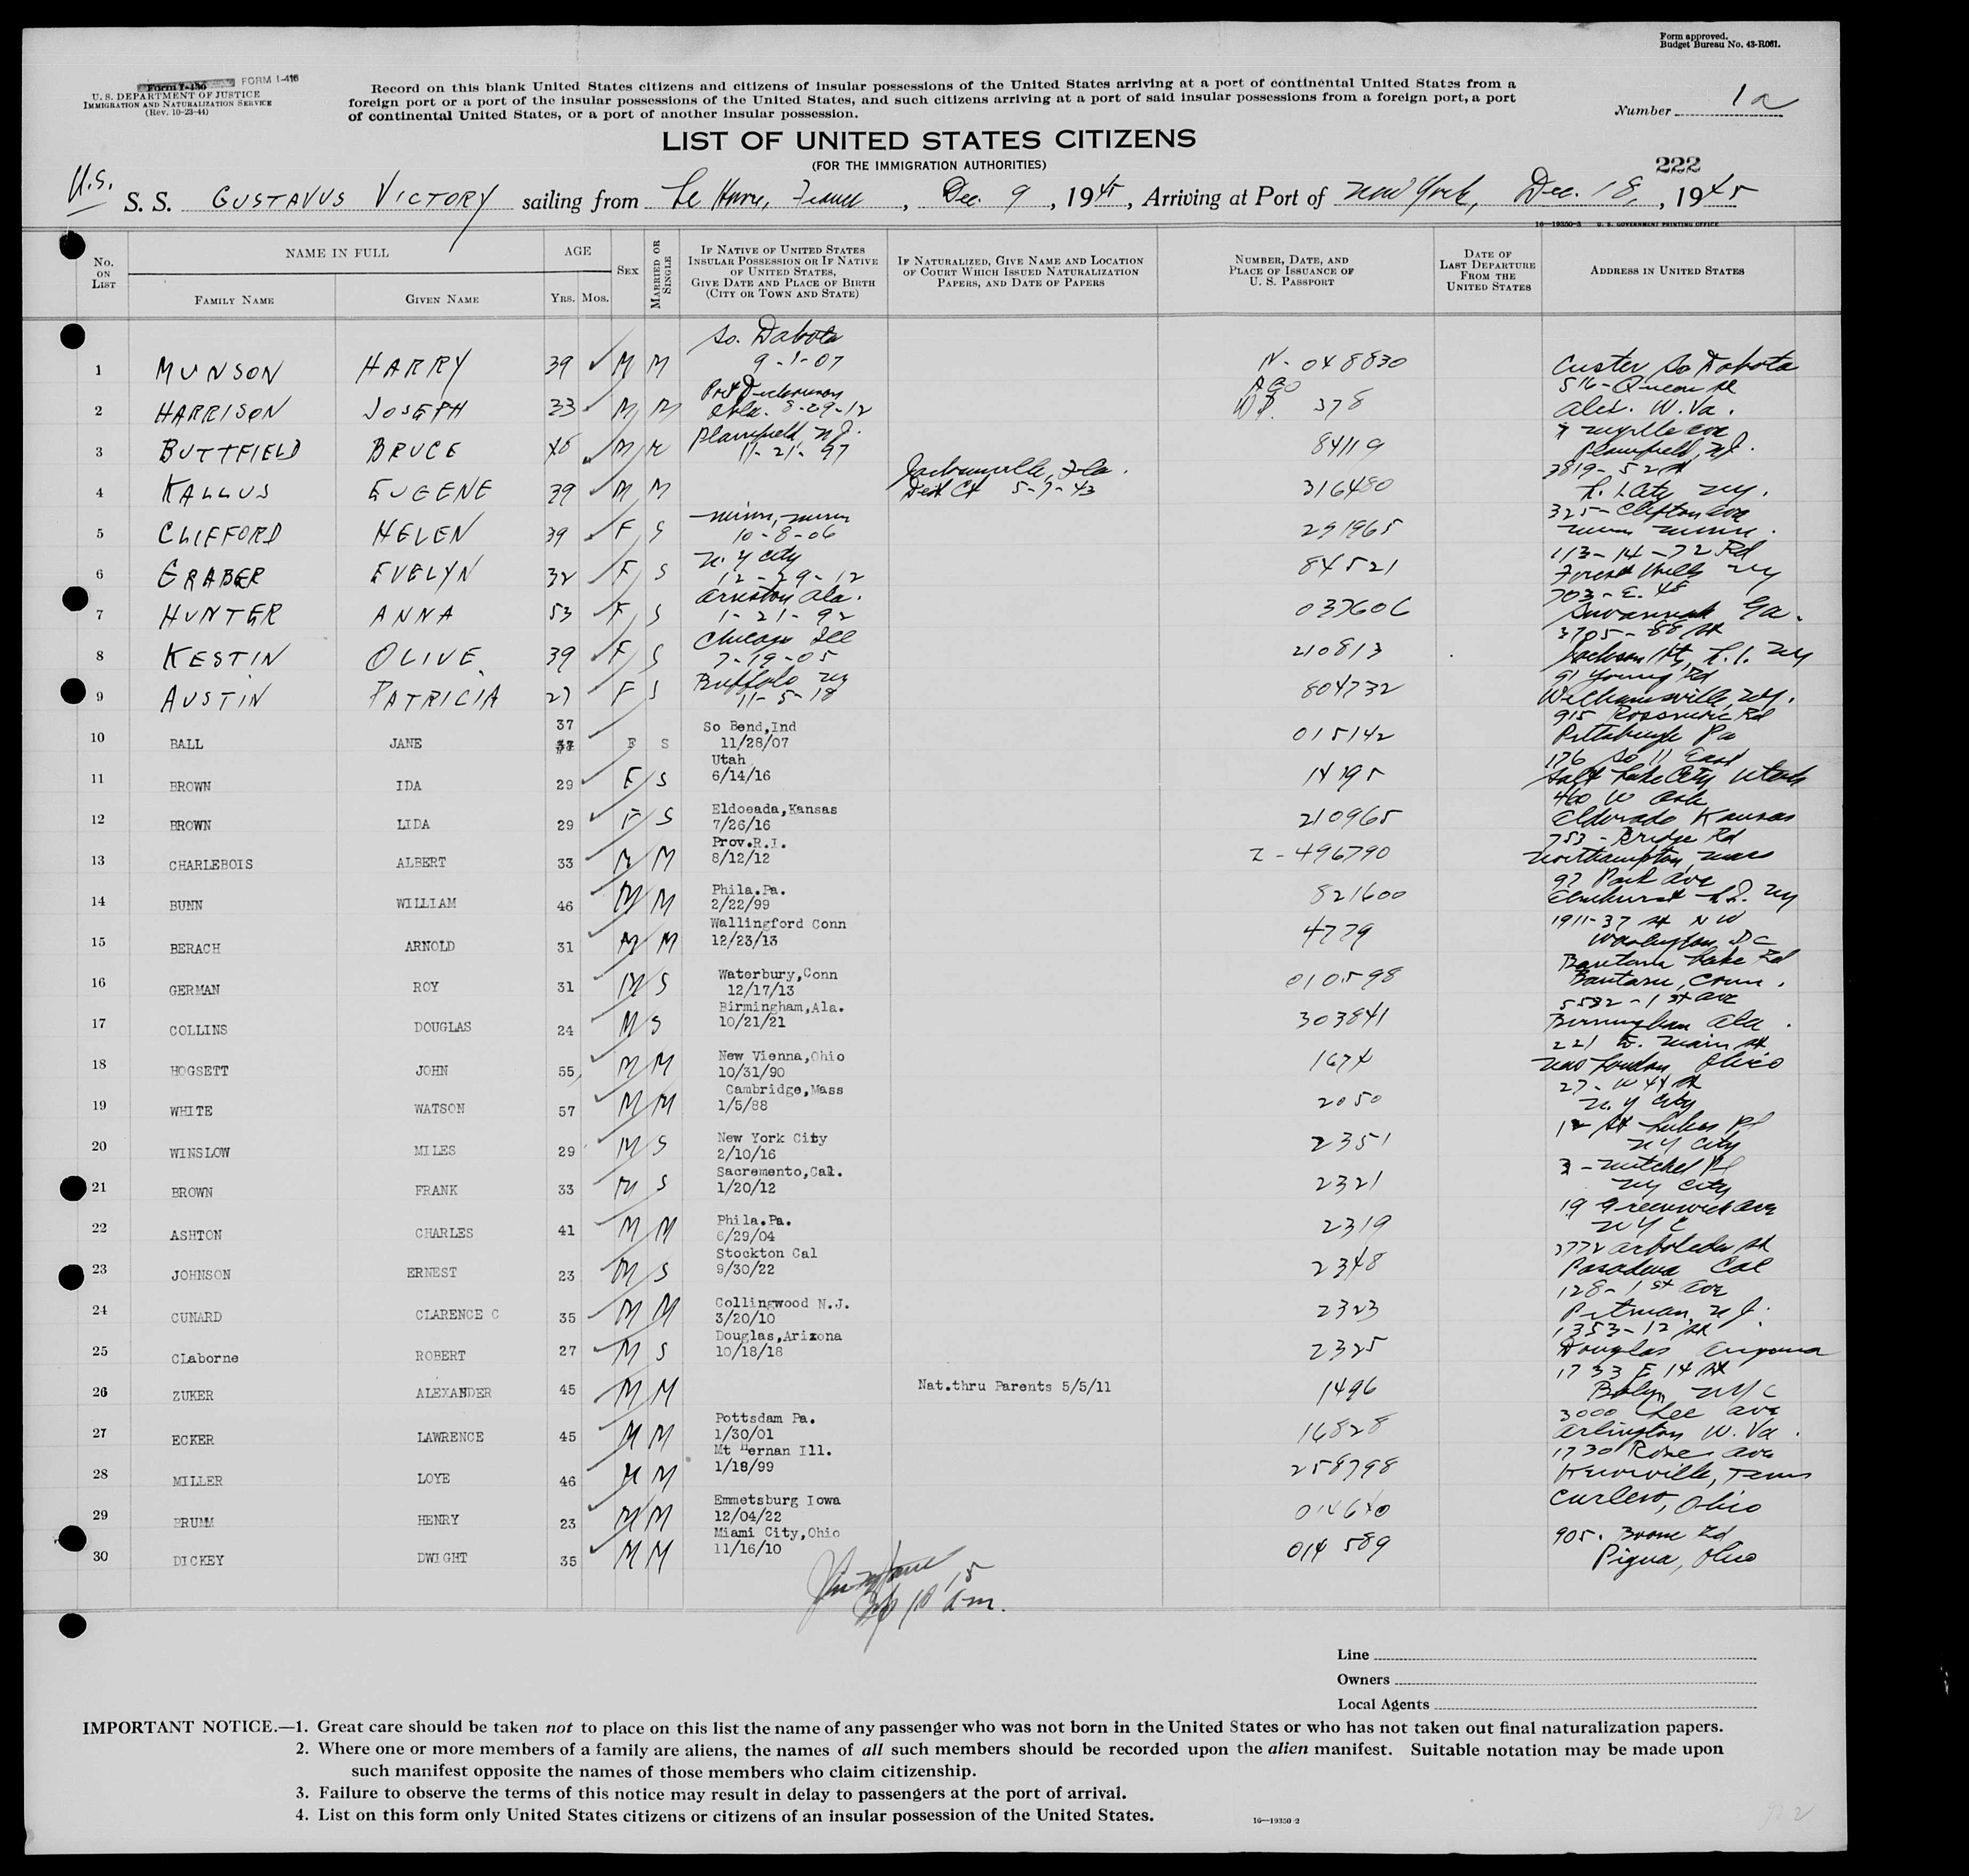 Form approved.
Budget Bureau No. 43-R061.
FORM I-416
U. S. DEPARTMENT OF JUSTICE
IMMIGRATION AND NATURALIZATION SERVICE
(Rev. 10-23-44)
Record on this blank United States citizens and citizens of insular possessions of the United States arriving at a port of continental United States from a
foreign port or a port of the insular possessions of the United States, and such citizens arriving at a port of said insular possessions from a foreign port, a port
of continental United States, or a port of another insular possession.
Number 1a
LIST OF UNITED STATES CITIZENS
(FOR THE IMMIGRATION AUTHORITIES)
222
U.S. S. S. GUSTAVUS VICTORY sailing from Le Havre, France, Dec. 9, 1945, Arriving at Port of New York, Dec. 18, 1945
16—19350-3 U. S. GOVERNMENT PRINTING OFFICE
No. ON LIST
NAME IN FULL
FAMILY NAME
GIVEN NAME
AGE
Yrs. Mos.
SEX
MARRIED OR SINGLE
IF NATIVE OF UNITED STATES INSULAR POSSESSION OR IF NATIVE OF UNITED STATES, GIVE DATE AND PLACE OF BIRTH (CITY OR TOWN AND STATE)
IF NATURALIZED, GIVE NAME AND LOCATION OF COURT WHICH ISSUED NATURALIZATION PAPERS, AND DATE OF PAPERS
NUMBER, DATE, AND PLACE OF ISSUANCE OF U. S. PASSPORT
DATE OF LAST DEPARTURE FROM THE UNITED STATES
ADDRESS IN UNITED STATES
1 MUNSON HARRY 39 M M So. Dakota 9-1-07 N-048830 Custer So Dakota
2 HARRISON JOSEPH 33 M M 8-29-12 AGO 378 516-Queen St Alex. W. Va.
3 BUTTFIELD BRUCE 48 M M Plainfield, N.J. 11-21-97 84119 Myrtle ave Plainfield, N.J.
4 KALLUS EUGENE 39 M M Jacksonville, Fla. Dist Ct 5-7-43 316480 3819-52 St L. I. City N.Y.
5 CLIFFORD HELEN 39 F S Minn, Minn 10-8-06 291965 325-Clifton ave Minn Minn.
6 GRABER EVELYN 32 F S N. Y City 12-29-12 84521 113-14-72 Rd Forest Hills NY
7 HUNTER ANNA 53 F S Anniston Ala. 1-21-92 037606 703-E. 48 Savannah Ga.
8 KESTIN OLIVE 39 F S Chicago Ill 7-19-05 210813 3705-88 St Jackson Hts, L.I. NY
9 AUSTIN PATRICIA 27 F S Buffalo NY 11-5-18 804732 91 Young Rd Williamsville, N.Y.
10 BALL JANE 37 F S So Bend,Ind 11/28/07 015142 915 Rossmore Rd Pittsburgh Pa
11 BROWN IDA 29 F S Utah 6/14/16 14795 176 So 11 East Salt Lake City Utah
12 BROWN LIDA 29 F S Eldoeada,Kansas 7/26/16 210965 460 W Ash Eldorado Kansas
13 CHARLEBOIS ALBERT 33 M M Prov.R.I. 8/12/12 Z-496790 753-Bridge Rd Northampton, Mass
14 BUNN WILLIAM 46 M M Phila.Pa. 2/22/99 821600 97 Park ave Elmhurst L.I. NY
15 BERACH ARNOLD 31 M M Wallingford Conn 12/23/13 4779 1911-37 St N W Washington, DC
16 GERMAN ROY 31 M S Waterbury,Conn 12/17/13 010598 Bantam Lake Rd Bantam, Conn.
17 COLLINS DOUGLAS 24 M S Birmingham,Ala. 10/21/21 303841 5532-1st ave Birmingham Ala.
18 HOGSETT JOHN 55 M M New Vienna,Ohio 10/31/90 1674 221 E. Main St New London, Ohio
19 WHITE WATSON 57 M M Cambridge,Mass 1/5/88 2050 27-W 44 St N. Y City
20 WINSLOW MILES 29 M S New York City 2/10/16 2351 12 St Lukes Pl NY City
21 BROWN FRANK 33 M S Sacremento,Cal. 1/20/12 2321 3-Mitchel Pl NY City
22 ASHTON CHARLES 41 M M Phila.Pa. 6/29/04 2319 19 Greenwich ave N Y C
23 JOHNSON ERNEST 23 M S Stockton Cal 9/30/22 2348 3772 Arboleda St Pasadena Cal
24 CUNARD CLARENCE C 35 M M Collingwood N.J. 3/20/10 2323 128-1st ave Pitman, N.J.
25 CLaborne ROBERT 27 M S Douglas,Arizona 10/18/18 2325 1353-12 St Douglas Arizona
26 ZUKER ALEXANDER 45 M M Nat.thru Parents 5/5/11 1496 1733 E 14 St Bklyn, NYC
27 ECKER LAWRENCE 45 M M Pottsdam Pa. 1/30/01 16828 3000 Lee ave Arlington W. Va.
28 MILLER LOYE 46 M M Mt Hernan Ill. 1/18/99 258798 1730 Rose ave Knoxville, Tenn
29 BRUMM HENRY 23 M M Emmetsburg Iowa 12/04/22 014640 Ohio
30 DICKEY DWIGHT 35 M M Miami City,Ohio 11/16/10 014589 905. Boone Rd Piqua, Ohio
Line
Owners
Local Agents
IMPORTANT NOTICE.—1. Great care should be taken not to place on this list the name of any passenger who was not born in the United States or who has not taken out final naturalization papers.
2. Where one or more members of a family are aliens, the names of all such members should be recorded upon the alien manifest. Suitable notation may be made upon
such manifest opposite the names of those members who claim citizenship.
3. Failure to observe the terms of this notice may result in delay to passengers at the port of arrival.
4. List on this form only United States citizens or citizens of an insular possession of the United States.
16—19350-2